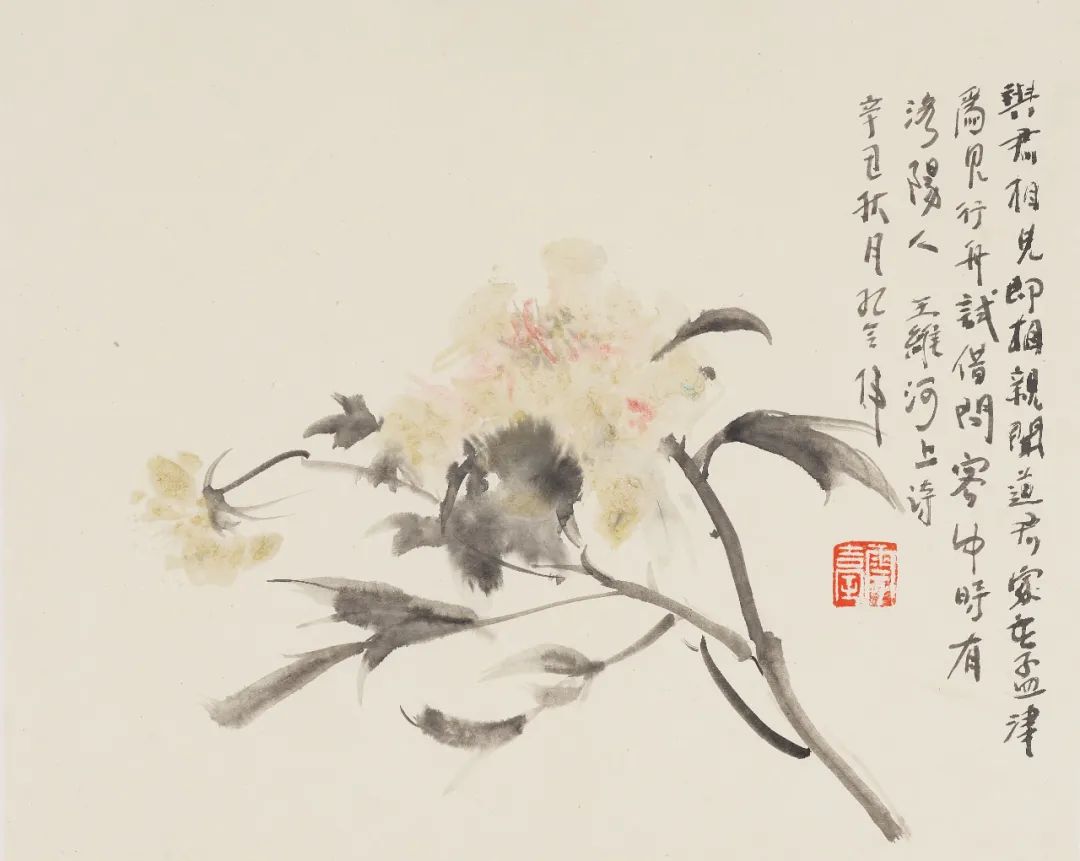 與君相見即相親聞道君家在孟津
爲見行舟試借問客中時有
洛陽人 王維河上詩
辛丑秋月孔令偉